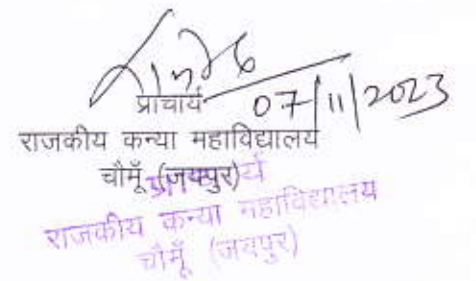 प्राचार्य
07/11/2023
राजकीय कन्या महाविद्यालय
चौमूँ (जयपुर)
प्राचार्य
राजकीय कन्या महाविद्यालय
चौमूँ (जयपुर)